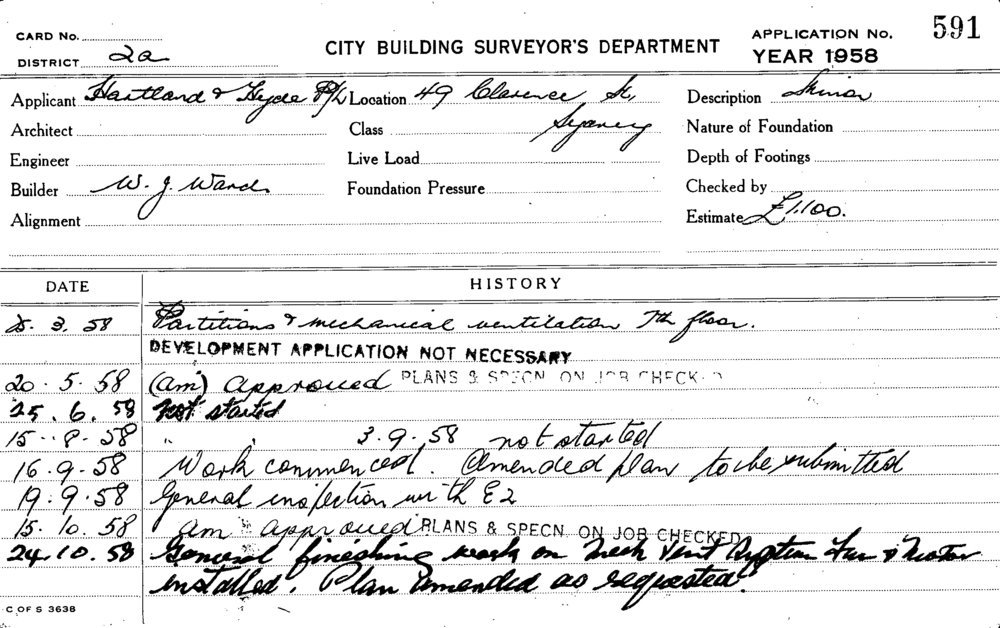 CARD No.
DISTRICT 2a
CITY BUILDING SURVEYOR'S DEPARTMENT
APPLICATION No. 591
YEAR 1958
Applicant Hartland & Hyde P/L Location 49 Clarence St, Description Minor
Architect Class Sydney Nature of Foundation
Engineer Live Load Depth of Footings
Builder W. J. Ward Foundation Pressure Checked by
Alignment Estimate £1,100.
DATE HISTORY
3. 58 Partitions & mechanical ventilation 7th floor.
DEVELOPMENT APPLICATION NOT NECESSARY
20. 5. 58 (am) approved PLANS & SPECN. ON JOB CHECKED
25. 6. 58 Not started
15. 8. 58 " " 3. 9. 58 not started
16. 9. 58 Work commenced. Amended plan to be submitted
19. 9. 58 General inspection with E2
15. 10. 58 am approved PLANS & SPECN. ON JOB CHECKED
24. 10. 58 General finishing work on Mech Vent System Fan & Motor
installed. Plan amended as requested.
C OF S 3638